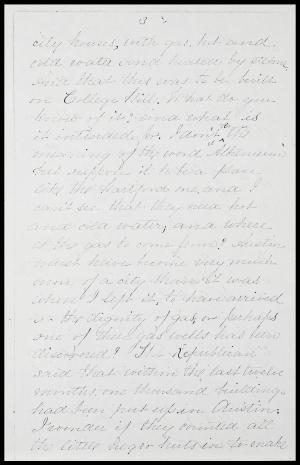 3
city houses, with gas, hot and
cold water and heated by steam
and that this was to be built
on College Hill. What do you
know of it? and what is
it intended for. I don't the
meaning of the word Atheneum
but suppose it to be a place
like the Hartford one, and I
can't see that they need hot
and cold water, and where
is the gas to come from? Austin
must have become very much
more of a city than it was
when I left it, to have arrived
at the dignity of gas, or perhaps
one of these gas wells has been
discovered? The Republican
said that within the last twelve
months, one thousand buildings
had been put up in Austin.
I wonder if they counted all
the little negro huts in to make